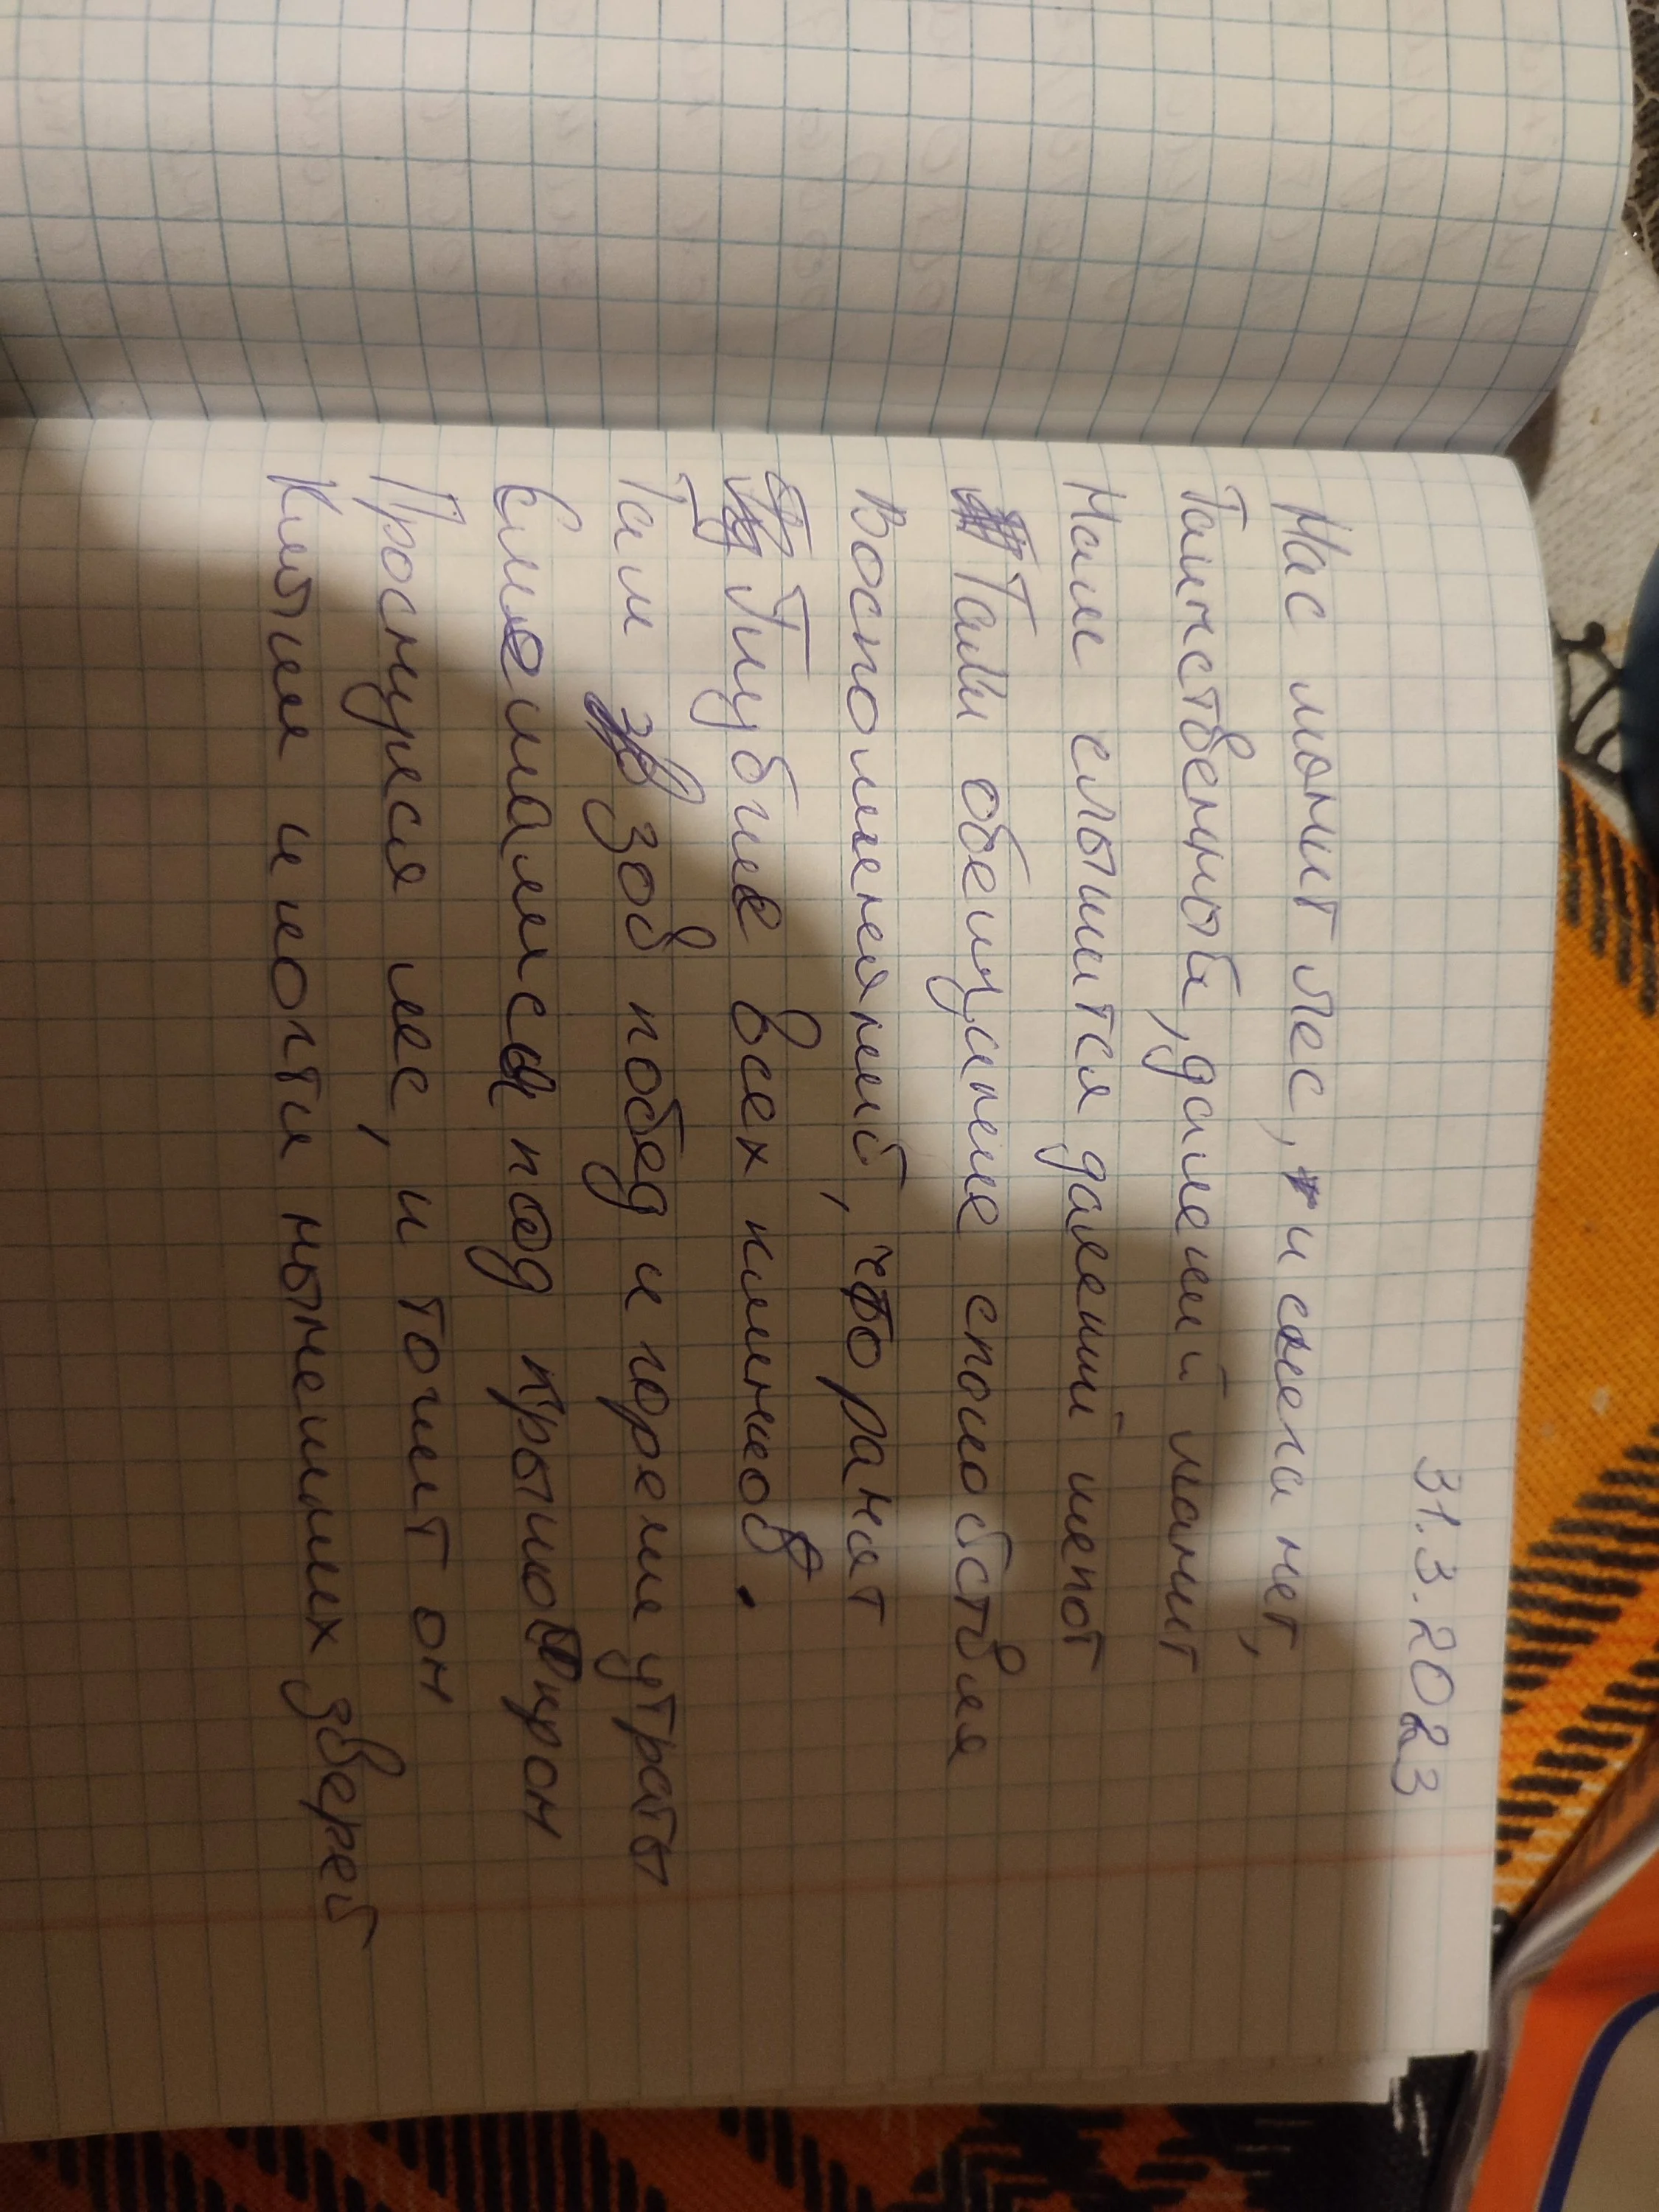 31.3.2023
Нас манит лес, и снега нет,
Таинственный, далекий манит
Нам слышится далекий шепот
Там обещание спокойствия
Воспоминаний, что ранят
Глубже всех клинков.
Там зов побед и горечи утраты
Сломалась под крышо урон
Проснулся лес, и точит он
Клыки и когти нынешних зверей